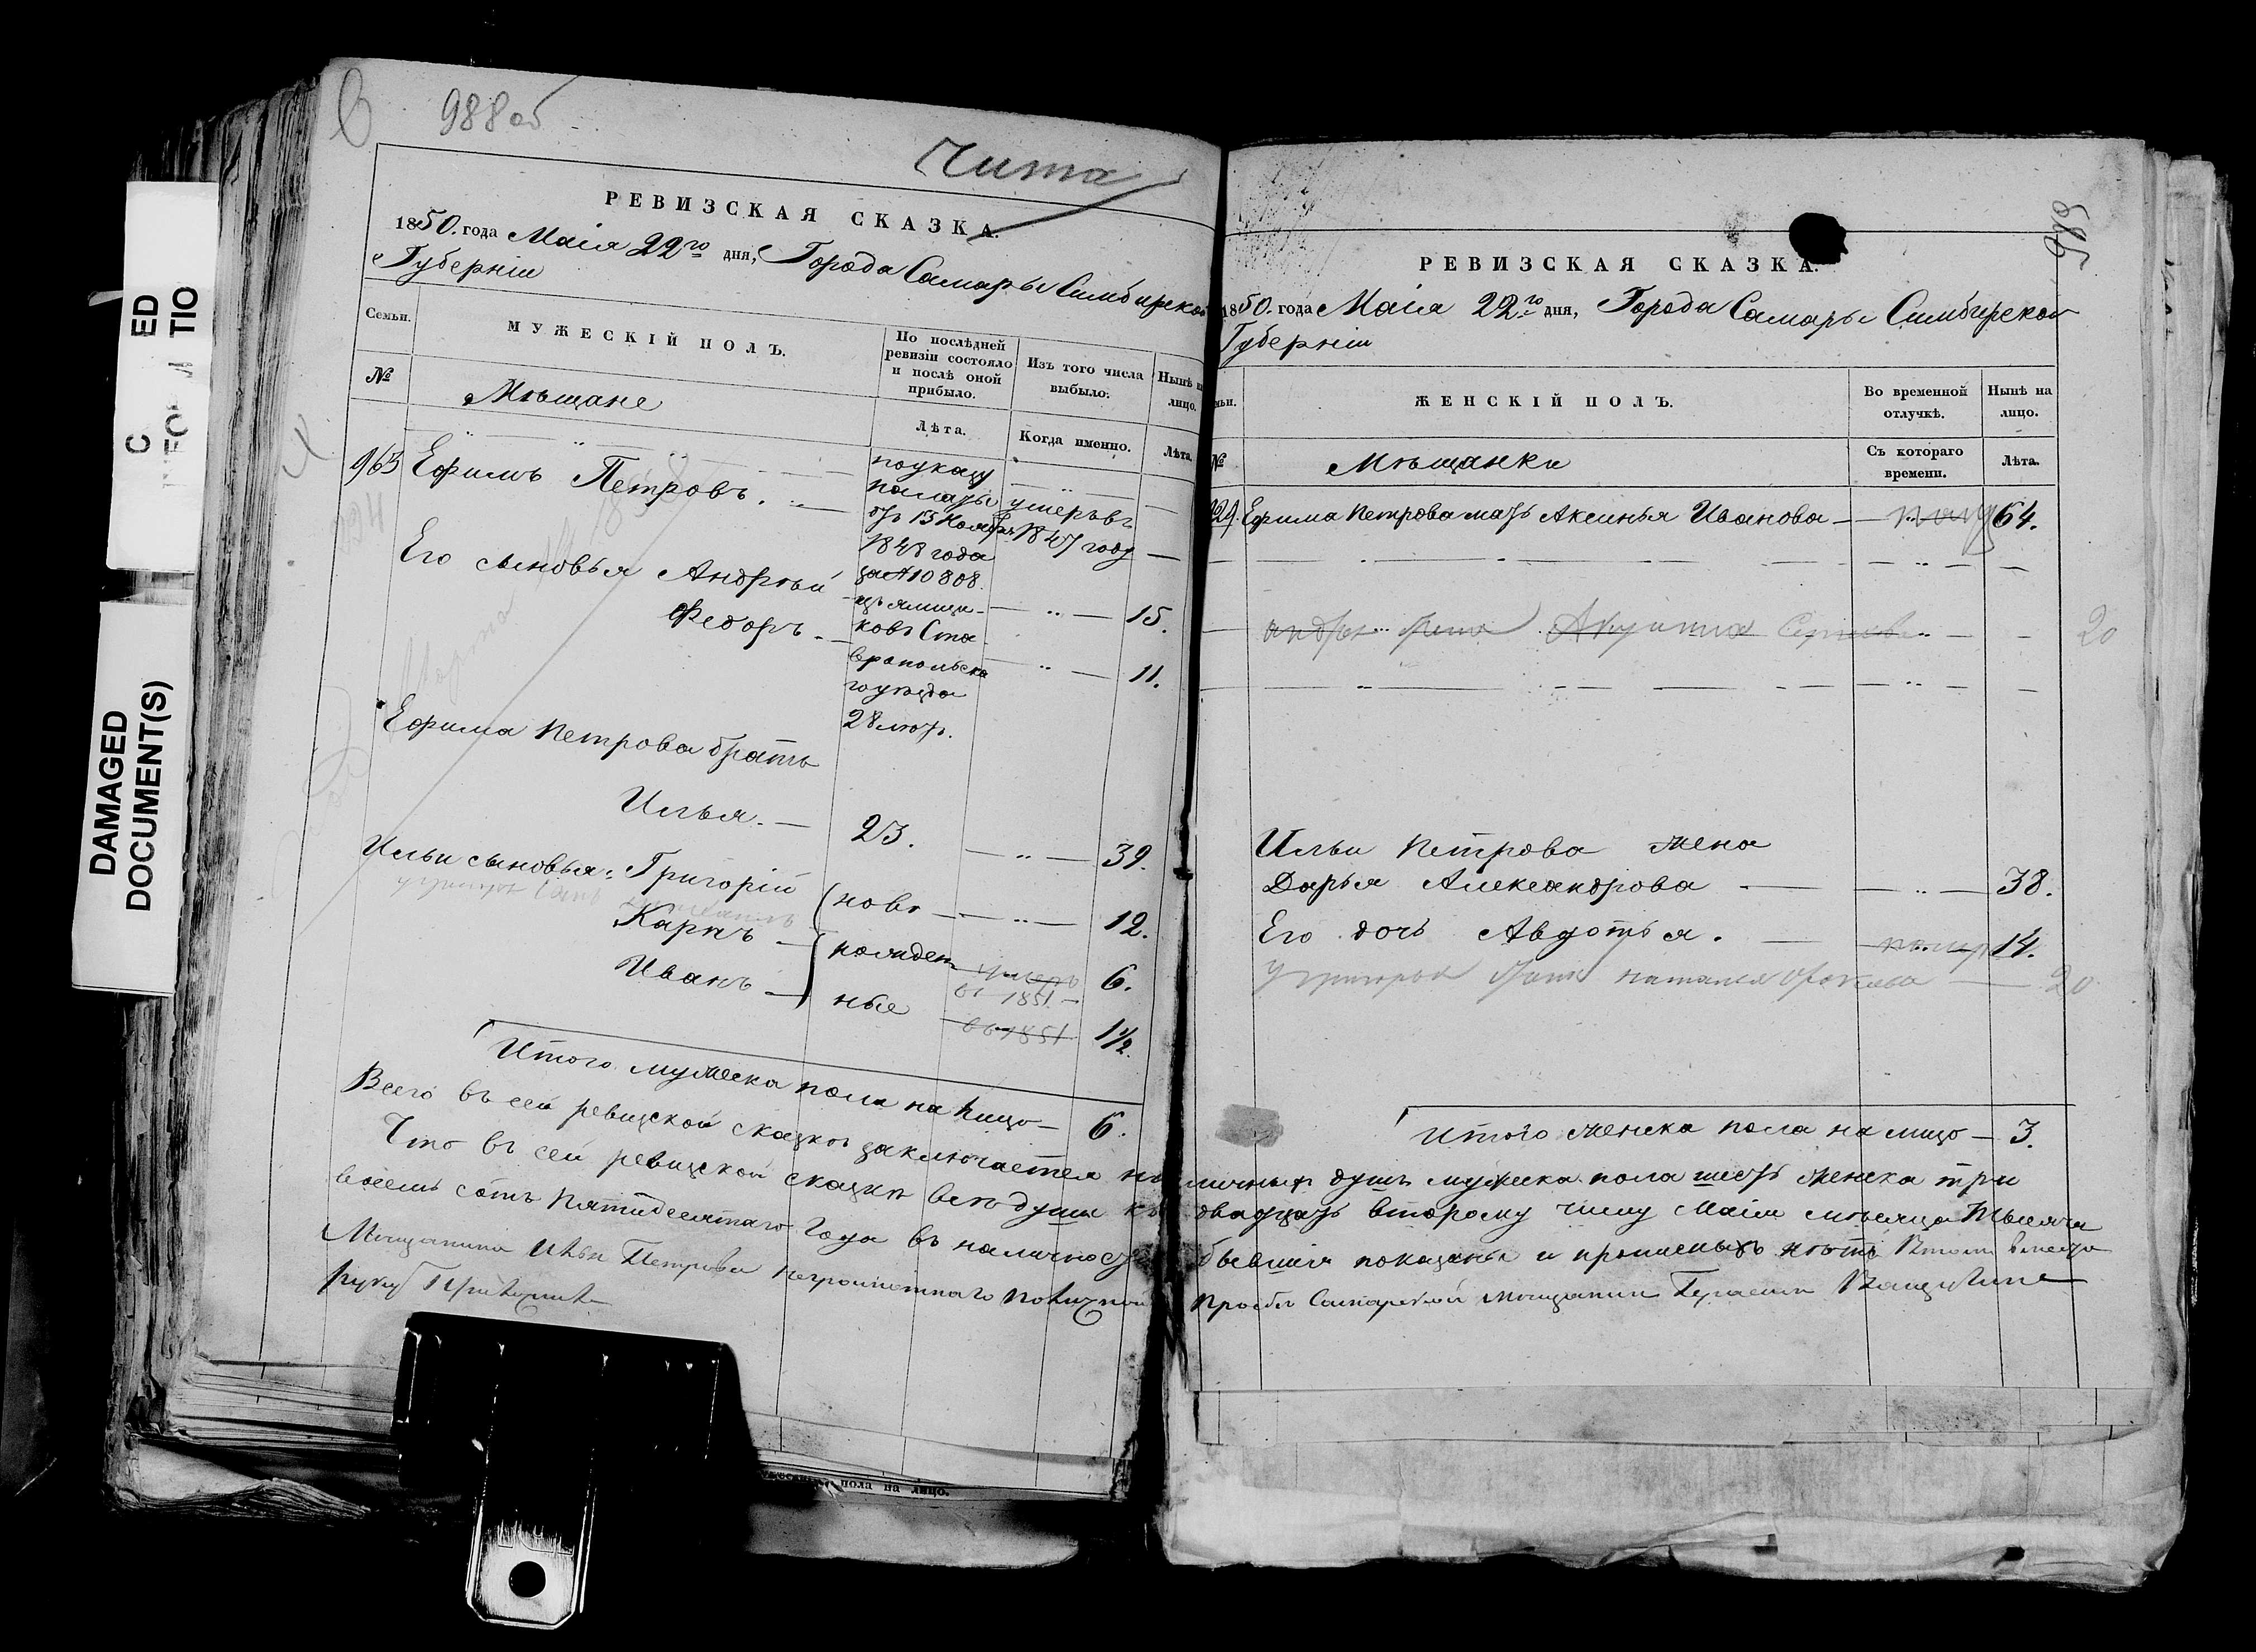 988 об
Чита
РЕВИЗСКАЯ СКАЗКА.
1850. года Маія 22го дня, Города Самары Симбирской
Губерніи
Семьи.
МУЖЕСКІЙ ПОЛЪ.
По послѣдней
ревизіи состояло
и послѣ оной
прибыло.
Изъ того числа
выбыло.
Нынѣ на
лицо.
№
Мѣщане
Лѣта.
Когда именно.
Лѣта.
963 Ефимъ Петровъ.
по указу
палаты
отъ 15 Ноябр.
1848 года
за № 10808.
изъ ямщи-
ковъ Ста
вропольска
го уѣзда
28 лѣтъ.
умеръ въ
1847 году
Его сыновья Андрей 15.
Федоръ. 11.
Ефима Петрова братъ
Илья. 23. 39.
Ильи сыновья: Григорій 12.
Карпъ 6.
Иванъ 1 1/2.
ново
рожден
ные
умеръ
въ 1851
въ 1851
Итого мужеска пола на лицо 6.
DAMAGED
DOCUMENT(S)
989
РЕВИЗСКАЯ СКАЗКА.
1850. года Маія 22го дня, Города Самары Симбирской
Губерніи
ЖЕНСКІЙ ПОЛЪ.
Во временной
отлучкѣ.
Нынѣ на
лицо.
№
Мѣщанки
Съ котораго
времени.
Лѣта.
Ефима Петрова мать Аксинья Иванова 64.
20
Ильи Петрова жена
Дарья Александрова 38.
Его дочь Авдотья. 14.
20
Итого женска пола на лицо 3.
Всего въ сей ревизской сказкѣ заключается наличныхъ душъ мужеска пола шесть женска три
Что въ сей ревизской сказкѣ всѣ души къ двадцать второму числу Маія мѣсяца тысяча
восемь сотъ пятидесятаго года въ наличности бывшія показаны и прописныхъ нѣтъ Въ томъ вмѣсто
Мѣщанина Ильи Петрова неграмотнаго по личной просьбѣ Самарской мѣщанинъ Герасимъ
руку приложилъ
пола на лицо.